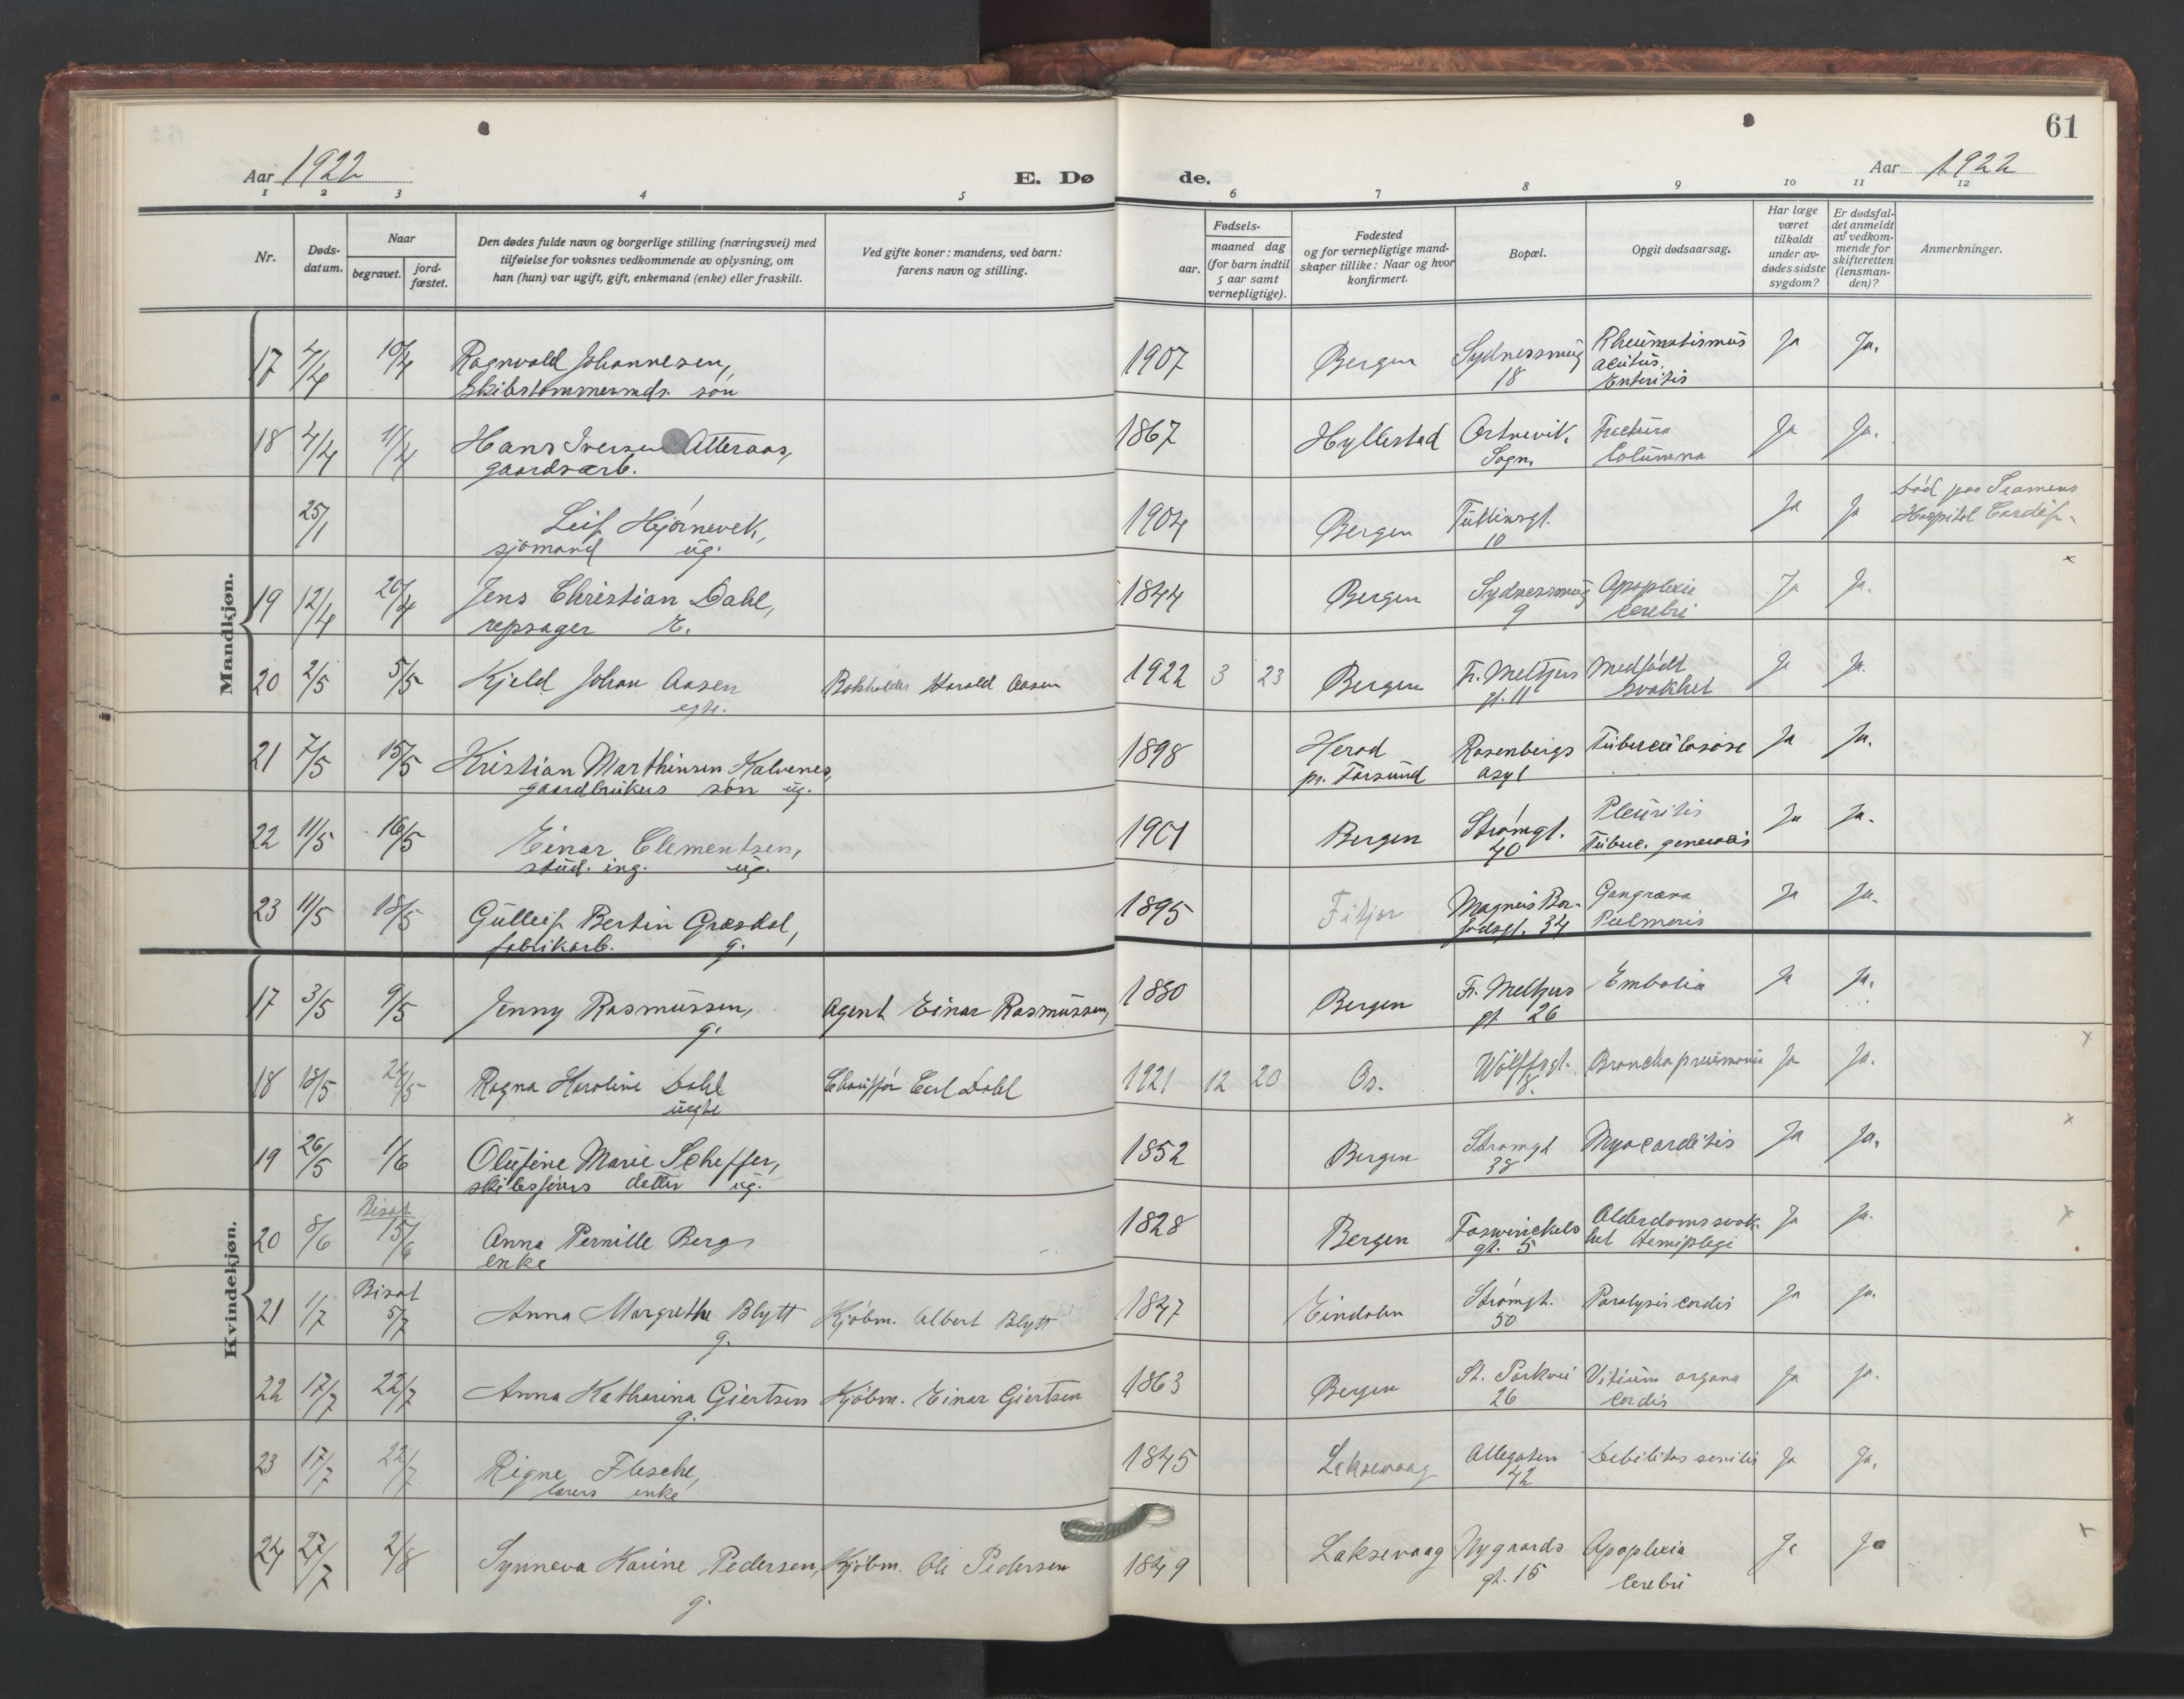 61
Aar 1922
E. Dø
de.
Aar 1922
1 2 3 4 5 6 7 8 9 10 11 12
Nr.
Døds-
datum.
Naar
begravet.
jord-
fæstet.
Den dødes fulde navn og borgerlige stilling (næringsvei) med
tilføielse for voksnes vedkommende av oplysning, om
han (hun) var ugift, gift, enkemand (enke) eller fraskilt.
Ved gifte koner: mandens, ved barn:
farens navn og stilling.
Fødsels-
aar.
maaned dag
(for barn indtil
5 aar samt
vernepligtige).
Fødested
og for vernepligtige mand-
skaper tillike: Naar og hvor
konfirmert.
Bopæl.
Opgit dødsaarsag.
Har læge
været
tilkaldt
under av-
dødes sidste
sygdom?
Er dødsfal-
det anmeldt
av vedkom-
mende for
skifteretten
(lensman-
den)?
Anmerkninger.
Mandkjøn.
17 4/4 10/4 Ragnvald Johannesen, 1907 Bergen Sydnessmug Rheumatismus Ja Ja.
skibstømmermds. søn 18 acutus.
Enteritis
18 4/4 11/4 Hans Iversen Atteraas, 1867 Hyllestad Ortnevik, Fractura Ja Ja.
gaardsarb. Sogn. Columna
25/1 Leif Hjørnevek, 1904 Bergen Tullinsgt. Ja Ja Død paa Seamens
sjømand ug. 10 Hospital Cardif.
19 12/4 20/4 Jens Christian Dahl, 1844 Bergen Sydnessmug Apoplexie Ja Ja. x
repslager E. 9 cerebri
20 2/5 5/5 Kjeld Johan Aasen Bokholder Harald Aasen 1922 3 23 Bergen Fr. Meltzers Medfødt Ja Ja.
egte. gt. 11 svakhet
21 7/5 15/5 Kristian Marthinsen Kalvenes, 1898 Herad Rosenbergs Tuberculosose Ja Ja.
gaardbrukers søn ug. pr. Farsund asyl
22 11/5 16/5 Einar Clementsen, 1901 Bergen Strømgt. Pleuritis Ja Ja.
stud. ing. ug. 40 Tuberc. generalis
23 11/5 18/5 Gulleif Bertin Græsdal, 1895 Fitjar Magnus Bar- Gangræna Ja Ja.
fabrikarb. g. fodsgt. 34 Pulmoris
Kvindekjøn.
17 3/5 9/5 Jenny Rasmussen, Agent Einar Rasmussen, 1880 Bergen Fr. Meltzers Embolia Ja Ja.
g. gt. 26
18 18/5 24/5 Ragna Karoline Dahl Chauffør Carl Dahl 1921 12 20 Os. Wolffsgt. Bronchopneumonia Ja Ja. x
uegte 8.
19 26/5 1/6 Olufine Marie Scheffer, 1852 Bergen Strømgt Myocarditis Ja Ja. x
skibsførers datter ug. 38
20 8/6 Bisat 15/6 Anna Pernille Berg, 1828 Bergen Foswinckels Alderdomssvak- Ja Ja. x
enke gt. 5 het Hemiplegi
21 1/7 Bisat 5/7 Anna Margrethe Blytt Kjøbm. Albert Blytt 1847 Eindalen Strømgt. Paralysis cordis Ja Ja.
g. 50
22 17/7 22/7 Anna Katharina Giertsen Kjøbm. Einar Giertsen 1863 Bergen St. Parkvei Vitium organa Ja Ja.
g. 26 Cordis
23 17/7 22/7 Rigne Flesche, 1845 Laksevaag Allegaten Debilitas senilis Ja Ja.
lærers enke 42
24 27/7 2/8 Synneva Karine Pedersen, Kjøbm. Ole Pedersen 1849 Laksevaag Nygaards Apoplexia Ja Ja x
g. gt. 15 Cerebri